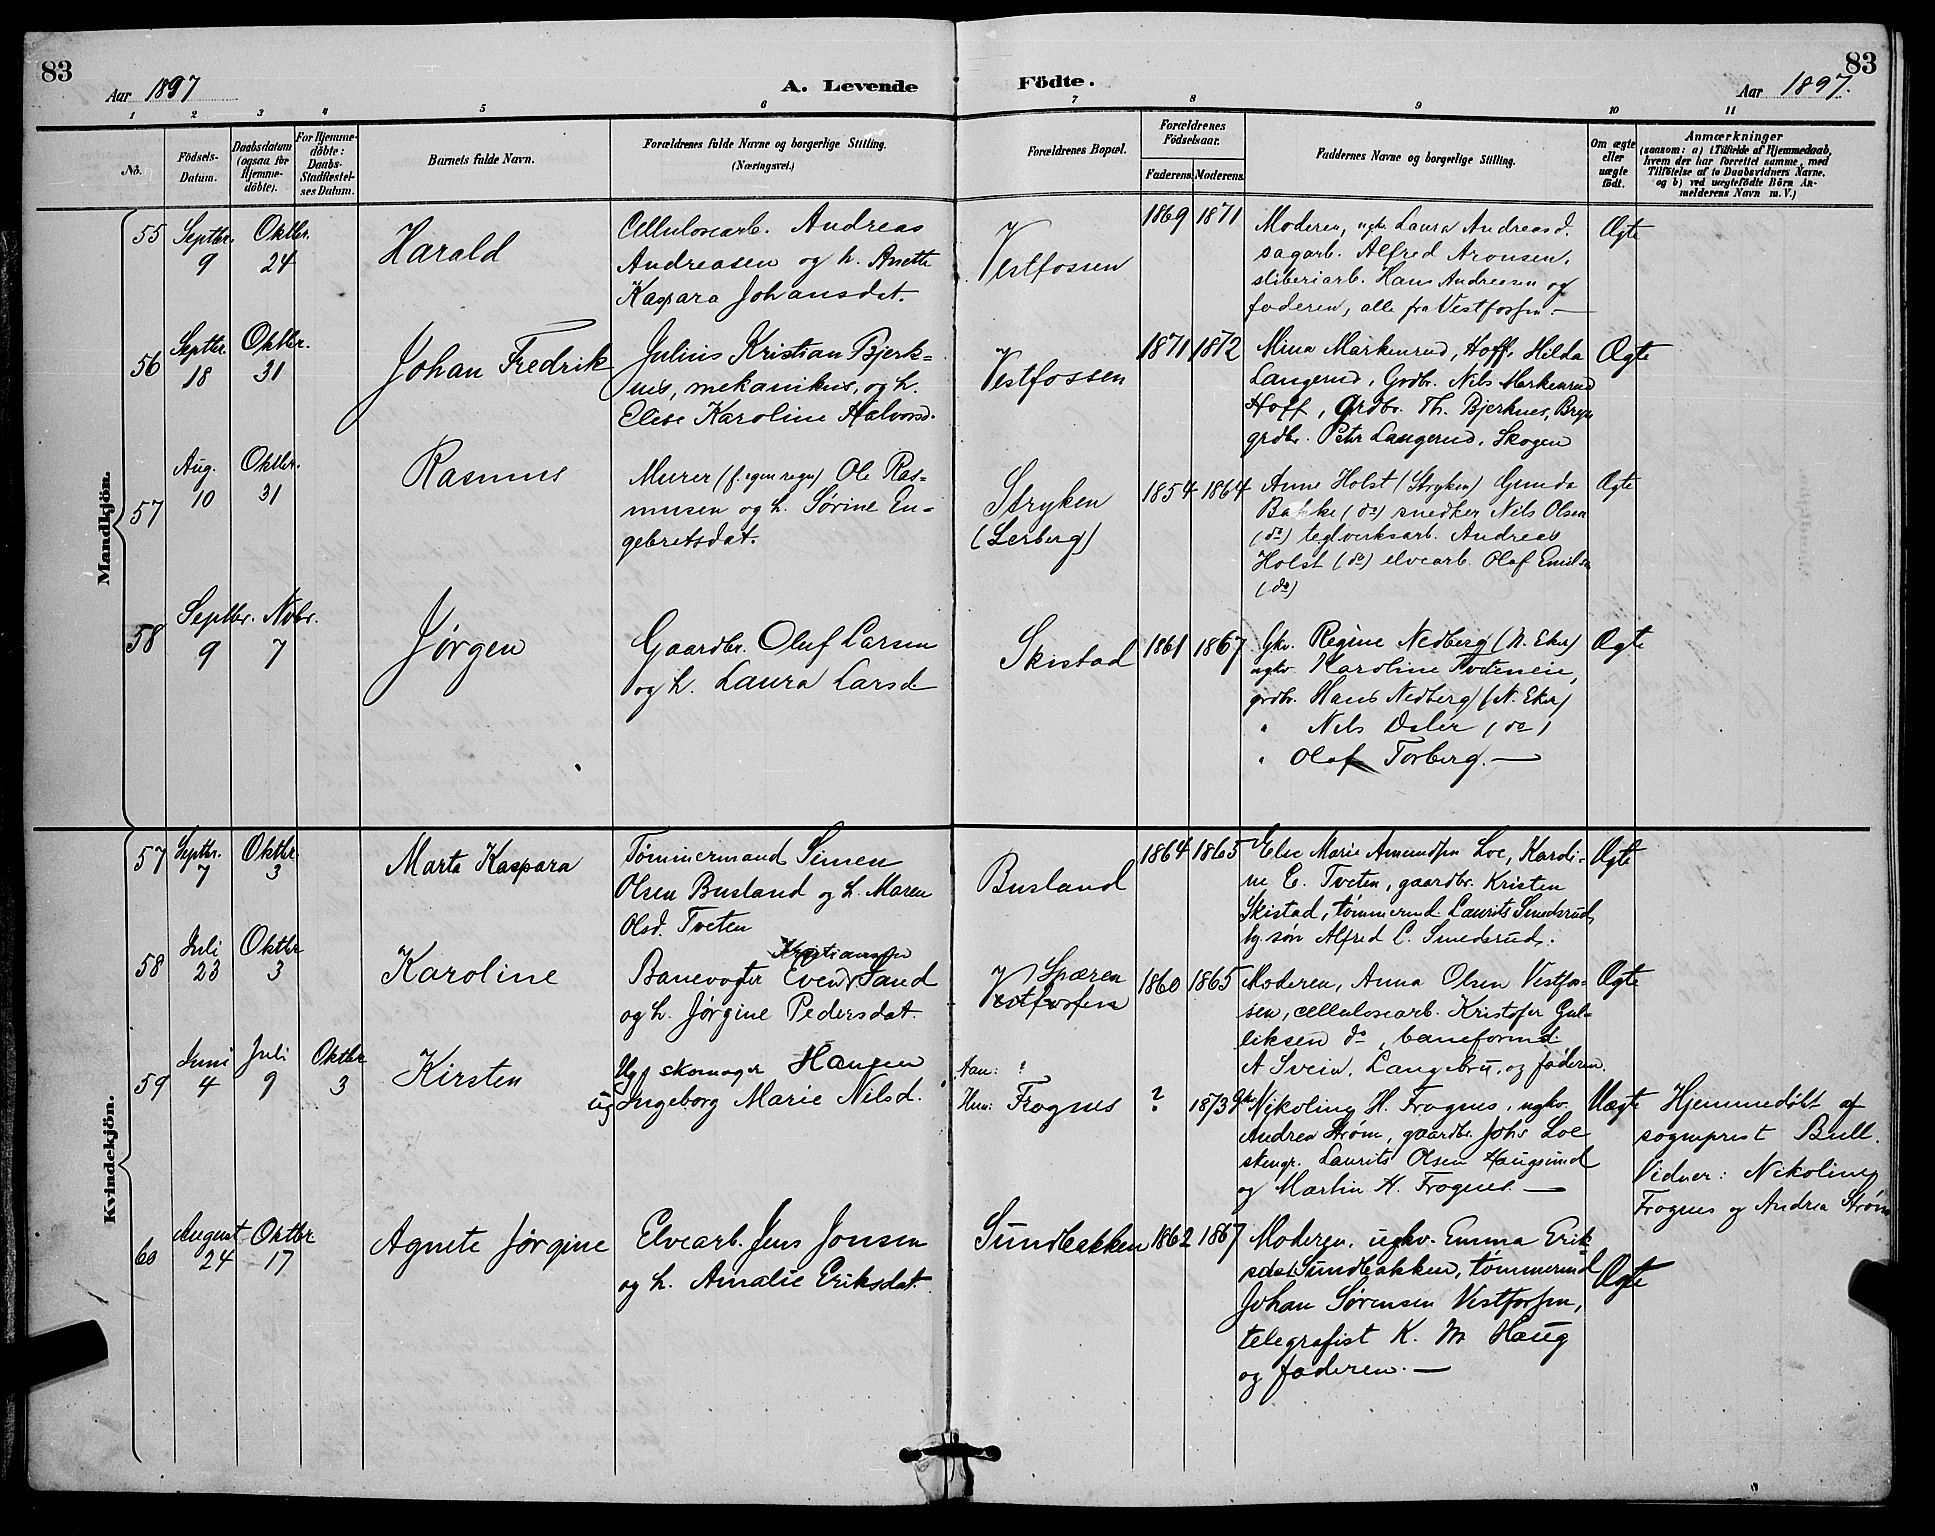 83
Aar 1897
A. Levende
Födte.
Aar 1897.
83
1 2 3 4 5 6 7 8 9 10 11
No.
Födsels-
Datum.
Daabsdatum
(ogsaa for
Hjemme-
döbte).
For Hjemme-
döbte:
Daabs-
Stadfæstel-
ses Datum.
Barnets fulde Navn.
Forældrenes fulde Navne og borgerlige Stilling.
(Næringsvei.)
Forældrenes Bopæl.
Forældrenes
Födselsaar.
Faderens. Moderens.
Faddernes Navne og borgerlige Stilling.
Om ægte
eller
uægte
födt.
Anmærkninger
(saasom: a) i Tilfælde af Hjemmedaab,
hvem der har forrettet samme, med
Tilföielse af to Daabsvidners Navne,
og b) ved uægtefödte Börn An-
melderens Navn m. V.)
Mandkjön.
55
Septbr.
9
Oktbr.
24
Harald
Cellulosearb. Andreas
Andreasen og h. Anette
Kaspara Johansdat.
Vestfossen
1869 1871
Moderen, ugkv. Laura Andreasd.
sagarb. Alfred Aronsen,
sliberiarb. Hans Andreasen og
faderen, alle fra Vestfossen. —
Ægte
56
Septbr.
18
Oktbr.
31
Johan Fredrik
Julius Kristian Bjerk-
nes, mekanikus, og h.
Elise Karoline Halvorsd.
Vestfossen
1871 1872
Mina Markerud, Hoff, Hilda
Langerud, Grdbr. Nils Markerud
Hoff, grdbr. Th. Bjerknes, Bryn
grdbr. Petr Langerud, Skogen
Ægte
57
Aug.
10
Oktbr.
31
Rasmus
Murer (f. egen regn) Ole Ras-
musen og h. Sørine En-
gebretsdat.
Stryken
(Lerberg)
1854 1864
Anne Holst (Stryken) Gunda
Bakke (do) snedker Nils Olsen
(do) teglverksarb. Andreas
Holst (do) elvearb. Olaf Emilsen
(do)
Ægte
58
Septbr.
9
Novbr.
7
Jørgen
Gaardbr. Oluf Larsen
og h. Laura Larsd.
Skistad
1861 1867
Gkv. Regine Nedberg (N. Eker)
ugkv. Karoline Fodeneie,
grdbr. Hans Nedberg (N. Eker)
" Nils Daler (do)
" Olaf Torberg. —
Ægte
Kvindekjön.
57
Septbr.
7
Oktbr
3
Marta Kaspara
Tømmermand Simen
Olsen Busland og h. Maren
Olsd. Tveten
Busland
1864 1865
Else Marie Amundsen Loe, Karoli-
ne E. Tveten, gaardbr. Kristen
Skistad, tømmermd. Laurits Smedsrud,
og søn Alfred C. Smedsrud.
Ægte
58
Juli
23
Oktbr
3
Karoline
Kristiansen
Banevogter Even Sand
og h. Jørgine Pedersdat.
Spæren
Vestfossen
1860 1865
Moderen, Anna Olsen Vestfos-
sen, cellulosearb. Kristofer Gul-
liksen do, baneformd.
A Svein, Langebru, og faderen.
Ægte
59
Juni
4
Juli
9
Oktbr
3
Kirsten
Ug, skomager Hansen
ug Ingeborg Marie Nilsd.
Han: ?
Hun: Frognes
? 1873
Gkv Nikoline H. Frognes, ugkv.
Andrea Strøm, gaardbr. Johs Loe
skengr. Laurits Olsen Haugsund
og Martin H. Frognes. —
Uægte
Hjemmedøbt af
sogneprest Bull.
Vidner: Nikoline
Frognes og Andrea Strøm
60
August
24
Oktbr
17
Agnete Jørgine
Elvearb. Jens Jonsen
og h. Amalie Eriksdat.
Sundbakken
1862 1867
Moderen, ugkv. Emma Erik-
sdat Sundbakken, tømmermd
Johan Sørensen Vestfossen,
telegrafist K. M Haug
og faderen. —
Ægte